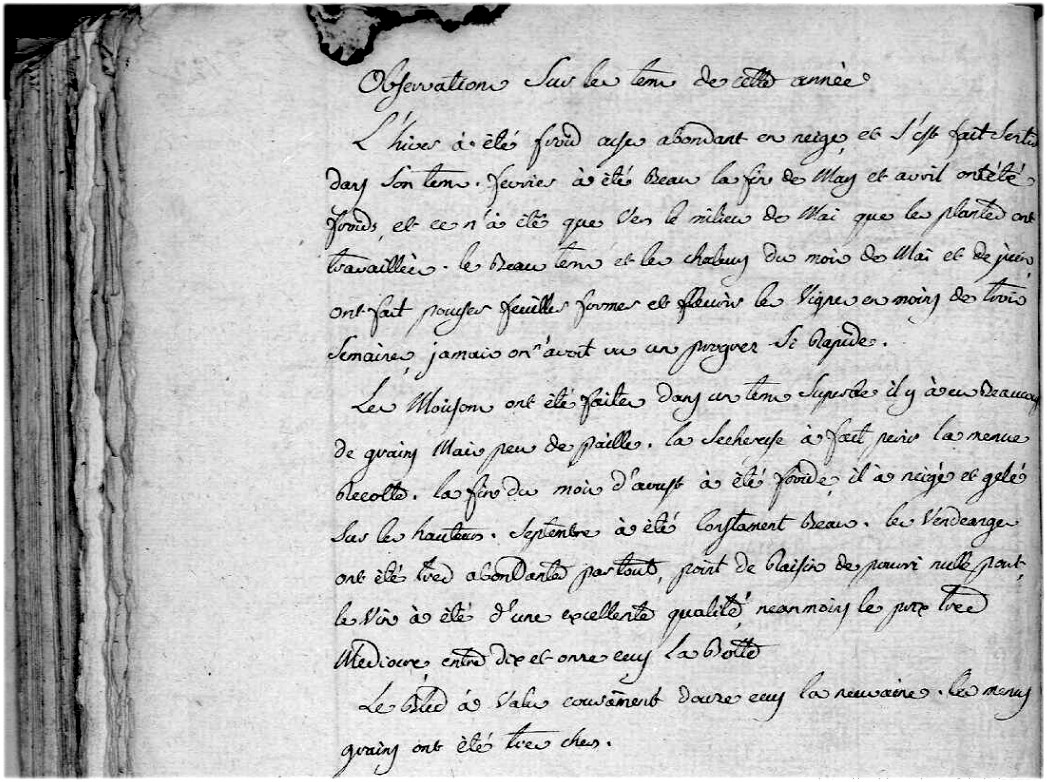 Observations Sur les tems de cette année
L'hiver à été froid assés abondant en neige, et s'est fait Sentir
dans Son tems. fevrier à été Beau la fin de Mars et avril ont été
froids, et ce n'à été que Vers le milieu de Mai que les plantes ont
travaillées. le Beau tems et les chaleurs du mois de Mai et de juin
ont fait pousser feuilles former et fleurir les Vignes en moins de trois
Semaines, jamais on n'avoit vu un progrez Si Rapide.
Les Moissons ont été faites dans un tems Superbe il y à eu Beaucoup
de grains Mais peu de paille. la Secheresse à fait perir la menue
Recolte. la fin du mois d'aoust à été froide, il à neigé et gelé
Sur les hauteurs. Septembre à été Constament Beau. les Vendanges
ont été tres abondantes partout, point de Raisin de pourri nulle part,
le Vin à été d'une excellente qualité, neanmoins le prix tres
Mediocre, entre dix et onze ecus La Botte
Le Bled à Valu courament douze ecus la neuvaine. les menus
grains ont été tres chers.